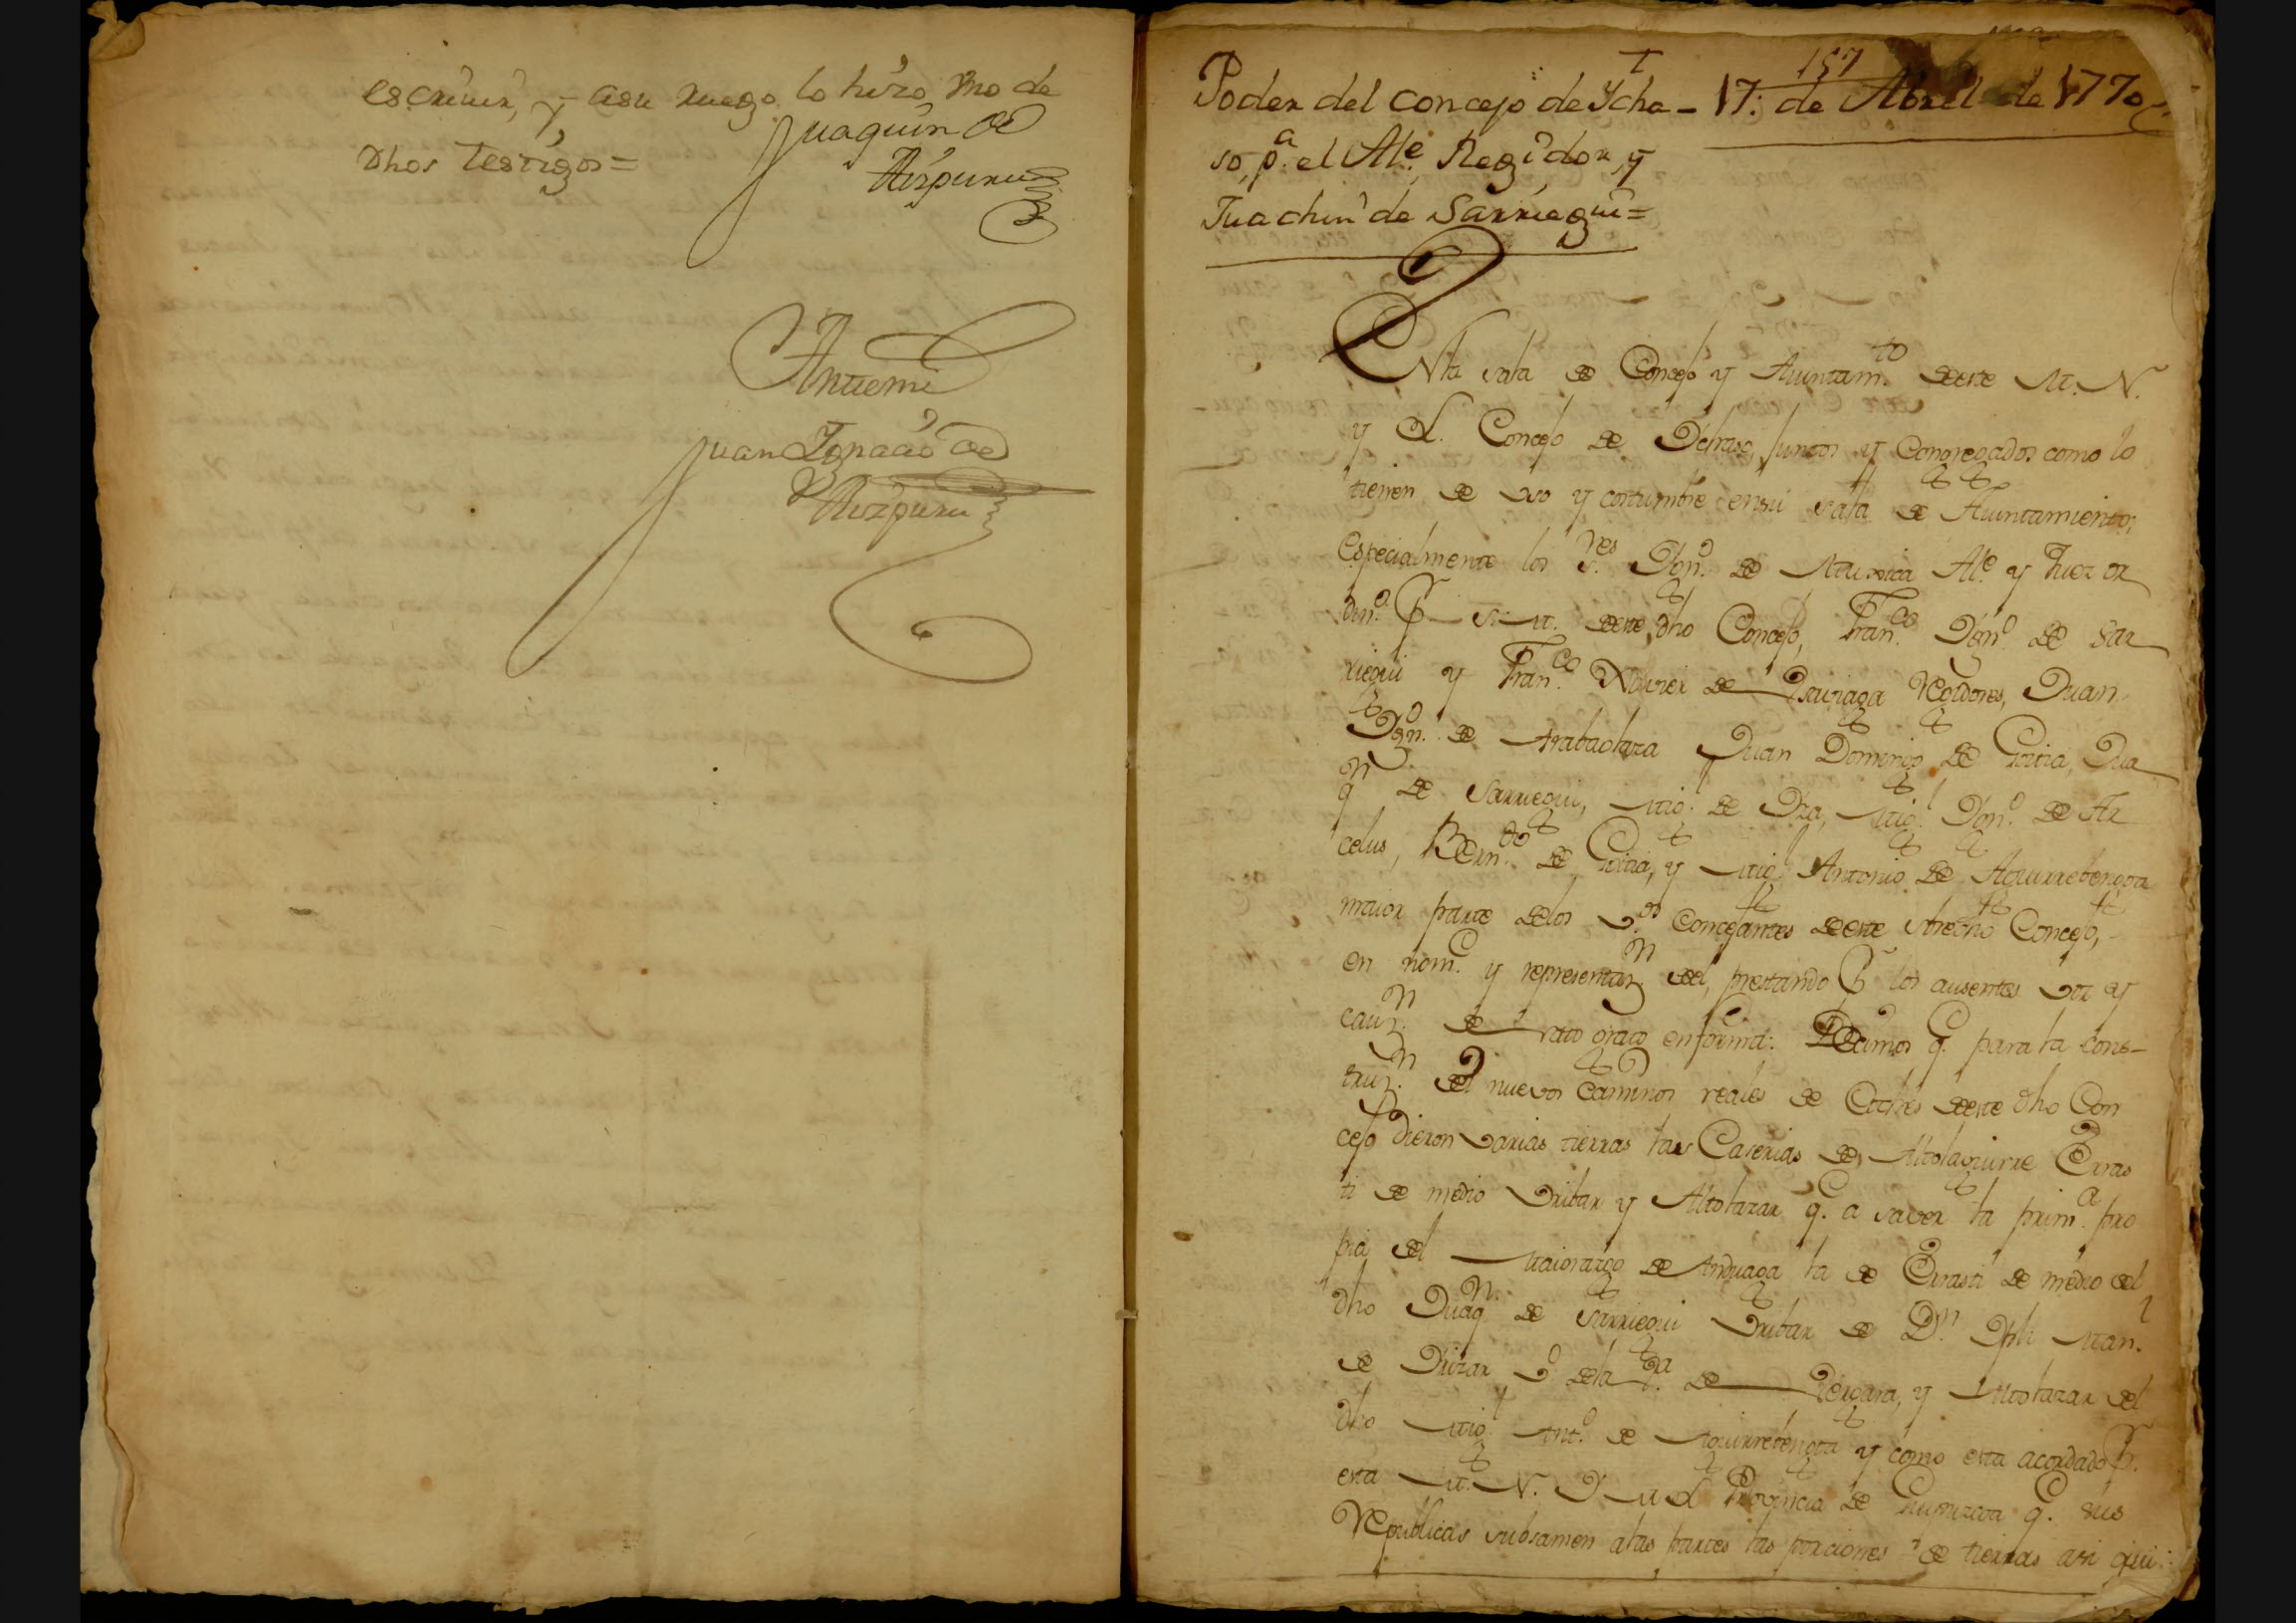 escriuir, y asu ruego lo hizo vno de
dhos testigos=
Juaquin de
Aizpuru
Antemi
Juan Ignacio de
Aizpuru
157
Poder del concejo de Ycha- 17: de Abril de 1770
so, pa. el Ale. Regidor, y
Juachin de Sarriegui=
En la sala de Concejo y Aiuntamto. de este M. N.
y L. Concejo de Ychaso, juntos y Congregados como lo
tienen de vso y costumbre en su sala de Aiuntamiento;
Especialmente los Sres. Ygno. de Muxica Ale. y Juez or
dino. Pr S. M. de este dho Concejo, Franco. Ygno. de Sar
riegui y Franco. Xavier de Ysuriaga Regidores, Juan
Ygno. de Arabaolaza Juan Domingo de Goitia, Jua
qn de Sarriegui, Migl. de Yza, Migl. Ygno. de Ar
celus, Berndo. de Goitia, y Migl Antonio de Aguirrebengoa
maior parte delos Vos. concejantes de este dho Concejo,
en nome. y representazn. del, prestando Pr los ausentes voz y
cauzn. de rato grato en forma: Decimos qe. para la cons-
truzn. de nuevos caminos reales de Coches de este dho Con
cejo dieron varias tierras las Caserias de Altolaguirre Erras
ti de medio Oribar y Altolazar qe. a saver la prima. pro
pia del Maiorazgo de Anduaga la de Errasti de medio del
dho Juaqn. de Sarriegui Oribar de Dn. Jph Manl.
de Yrizar vo dela va. de Vergara, y Altolazar del
dho Migl Anto. de Aguirrebengoa y como esta acordado Pr.
esta M. N. Y M L Provincia de Guipuzcoa qe. sus
Republicas subsanen alas partes las porciones de tierras asi qui: